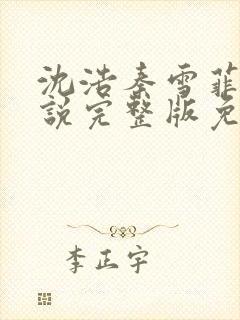 沈浩秦雪菲
說完整版免
李正宇